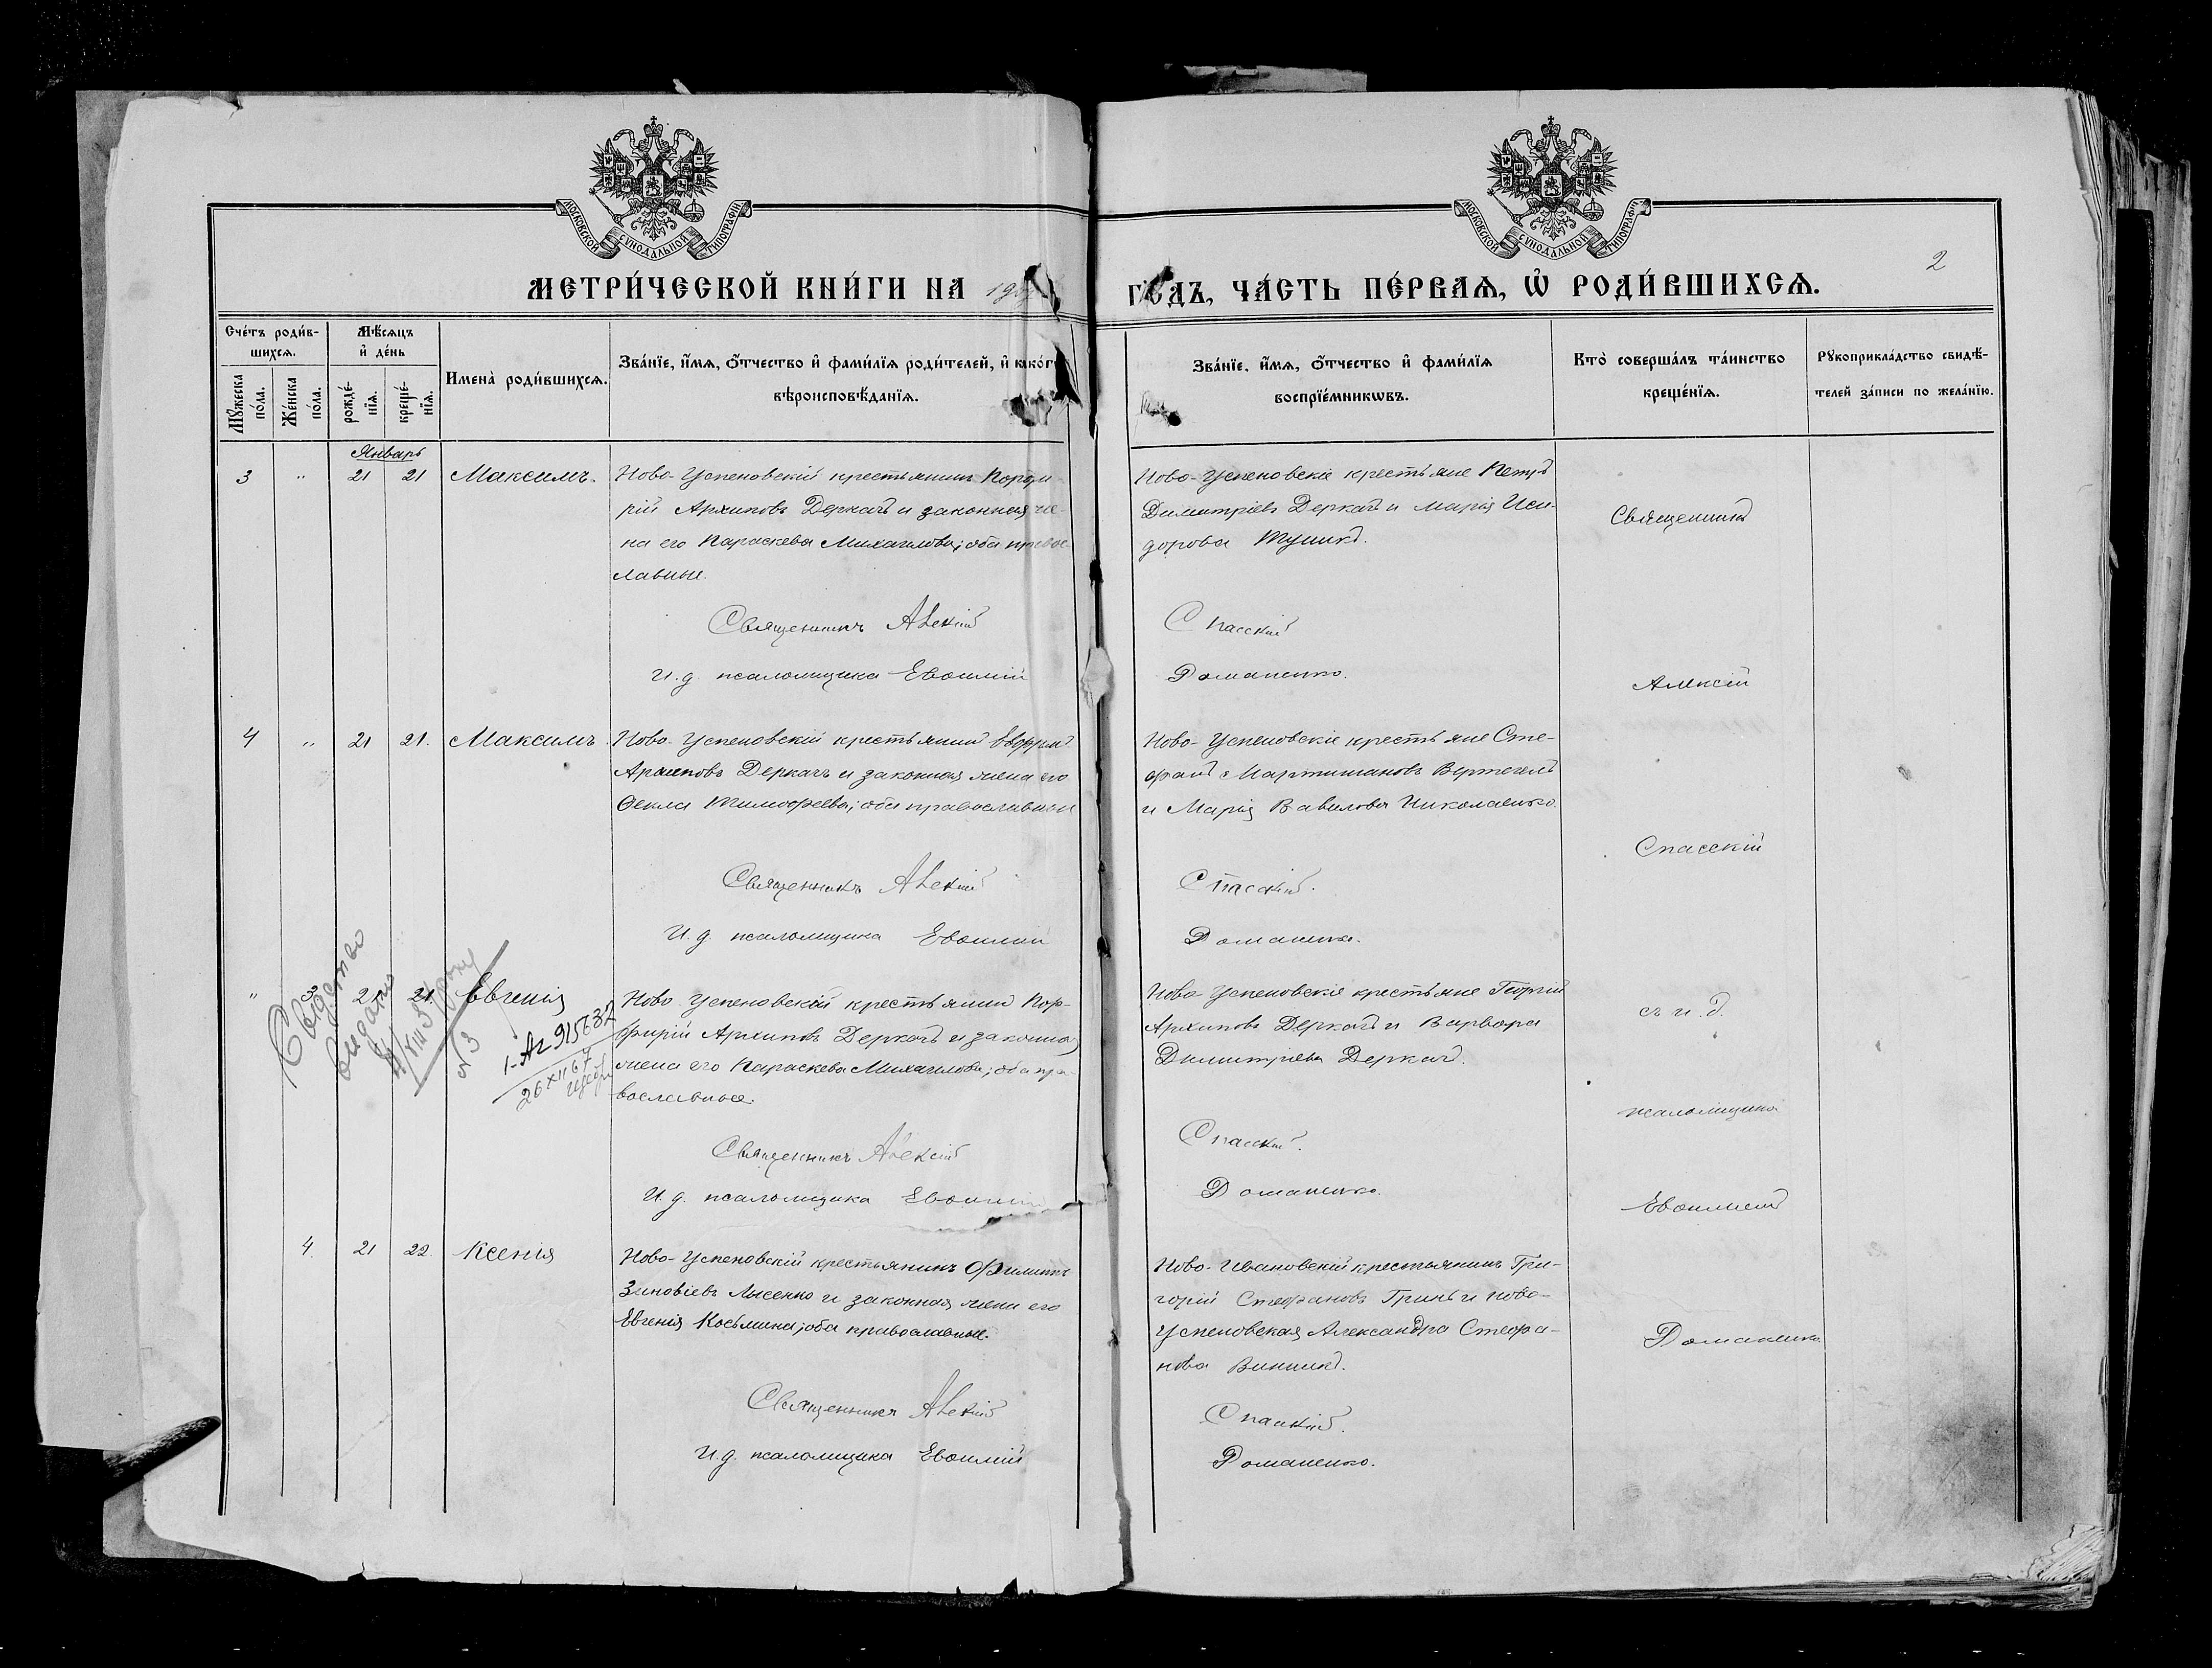 МОСКОВСКОЙ СУНОДАЛЬНОЙ ТИПОГРАФІИ
МОСКОВСКОЙ СУНОДАЛЬНОЙ ТИПОГРАФІИ
2
МЕТРИ́ЧЕСКОЙ КНИ́ГИ НА
ГОДЪ, ЧА́СТЬ ПЕ́РВАѦ, Ѡ РОДИ́ВШИХСѦ.
Сче́тъ роди́в-
шихсѧ.
Мѣ́сѧцъ
и҆ де́нь
Мꙋ́жеска
по́ла.
Же́нска
по́ла.
рожде́-
нїѧ.
креще́-
нїѧ.
Имена̀ роди́вшихсѧ.
Зва́нїе, и҆́мѧ, ѻ҆́тчество и҆ фами́лїѧ роди́телей, и҆ како́г
вѣроисповѣ́данїѧ.
Зва́нїе, и҆́мѧ, ѻ҆́тчество и҆ фами́лїѧ
воспрїе́мникѡвъ.
Кто̀ соверша́лъ та́инство
креще́нїѧ.
Рꙋкоприкла́дство свидѣ́-
телей за́писи по жела́нїю.
Январь
3 " 21 21 Максимъ.
Ново-Успеновскій крестьянинъ Порфи-
рій Архиповъ Деркачъ и законная же-
на его Параскева Михаилова; оба правос-
лавные.
Священникъ Алексій
И. д. псаломщика Евѳимій
Ново-Успеновскіе крестьяне Петръ
Димитріевъ Деркачъ и Марія Иси-
дорова
Спасскій
Романенко.
4 " 21 21. Максимъ.
Ново-Успеновскій крестьянинъ
Деркачъ и законная жена его
Ѳекла Тимоѳеева; оба православные
Священникъ Алексій
И. д. псаломщика Евѳимій
Ново-Успеновскіе крестьяне Сте-
фанъ Мартиніановъ
и Марія Вавилова Николаенко.
Спасскій.
Романенко.
" 3 21 21. Евгенія
Свідотво
видано
N 3
1-АГ 915637
26 XII 67
Ново-Успеновскій крестьянинъ Пор-
фирій Архиповъ Деркачъ и законная
жена его Параскева Михаилова; оба пра-
вославные.
Священникъ Алексій
И. д. псаломщика Евѳимій
Ново-Успеновскіе крестьяне Георгій
Архиповъ Деркачъ и Варвара
Димитріева Деркачъ.
Спасскій.
Романенко.
4. 21 22. Ксенія
Ново-Успеновскій крестьянинъ Филиппъ
Зиновіевъ Лысенко и законная жена его
Евгенія Косьмина; оба православные.
Священникъ Алексій
И. д. псаломщика Евѳимій
Ново-Ивановскій крестьянинъ Гри-
горій Стефановъ Гринь и Ново-
Успеновская Александра Стефа-
нова Винникъ.
Спасскій.
Романенко.
Священникъ
Алексій
Спасскій
съ и. д.
псаломщика
Евѳиміемъ
Романенко